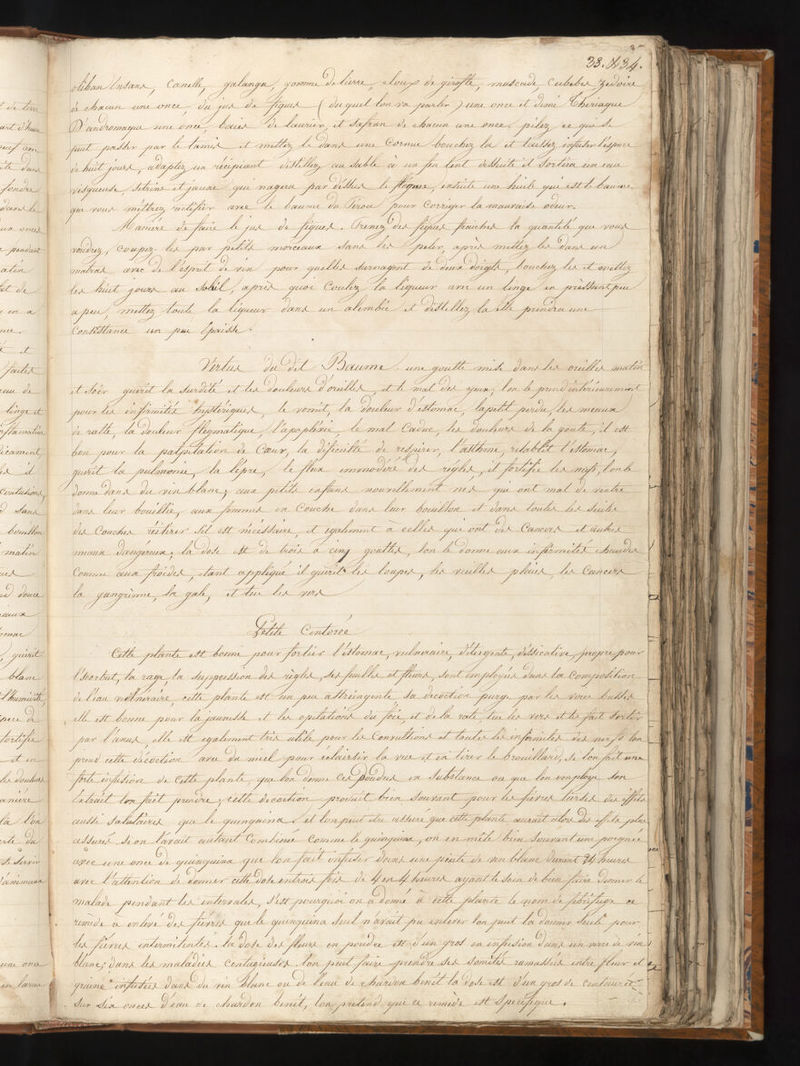 33. 434.
oliban Ensans, Canelle, galanga, gomme de lierre, clous de girofle, muscade, Cubebes Zedoire
de chacun une once, du jus de figues (du quel l'on va parler) une once et demie Theriaque
D'andromaque une once, baies de laurier, et safran de chacun une once, pilez ce qui se
peut passer par le tamis et mettez le dans une Cornue bouchez la et laissez infuser l'espace
de huit jours, adaptez un récipiant distillez au sable à un feu lent dessuite il sortira un eau
visqueuse citrine et jaune qui nagera par dessus le flegme, ensuite une huile qui est le baume
que vous méttrez rectifier avec le baume du Pérou pour corriger la mauvaise odeur.
Maniere de faire le jus de figues. Prenez des figues fraiches la quantité que vous
voudrez, coupez les par petits morceaux sans les peler, aprés mettez les dans un
matras avec de l'esprit de vin pour quelles surnagent de deux doigts, bouchez les et mettez
les huit jours au soleil, aprés quoi Coulez la liqueur avec un linge en préssant peu
a peu, mettez toute la liqueur dans un alembic et distillez la elle prendra une
Consistance un peu épaisse.
Vertus du dit Baume. une goutte mise dans les oreilles matin
et soir guérit la surdité et les douleurs d'oreilles, et le mal des yeux; l'on le prend intérieurement
pour les infirmités hystériques, le vomit, la douleur d'éstomac, l'apetit perdu, les meaux
de ratte, la douleur flegmatique, l'apopléxie, le mal Caduc, les douleurs de la goute, il est
bon pour la palpitation de Cœur, la dificulté de respirer, l'asthme, rétablit l'éstomac,
guérit la pulmonie, la lépre, le flux immodéré des régles, il fortifie les nerfs, l'on le
donne dans du vin blanc, aux petits enfans nouvellement nés qui ont mal de ventre
dans leur bouillie, aux femmes en Couche dans leur bouillon et dans toutes les suites
des Couches réitérer s'il est nécéssaire, et également à celles qui ont des Cancers et autres
meaux dangereux, la dose est de trois à cinq gouttes, l'on le donne aux infirmités chaudes
Comme aux froides, étant appliqué il guérit les loupes, les vieilles plaies, les Cancers
la gangrènne, la gale, et tue les vers
Petite Centorée
Cette plante est bonne pour fortier l'éstomac, vulneraire, détergente, déssicative, propre pour
l'scorbut, la rage la suppression des régles, ses feuilles et fleurs sont employées dans la Composition
de l'eau vulnéraire, cette plante est un peu astreingente sa décoction purge par les voies basses
elle est bonne pour la jaunisse et les opilations du foie et de la rate, tue les vers et les fait sortir
par l'anus, elle est également tres utile pour les Convultions et toutes les infirmites des nerfs l'on
prend cette décoction avec du miel pour éclaircir la vue et en tirer le brouillard, si l'on fait une
forte infusion de Cette plante que l'on donne Ces poudres en substance ou que l'on employe son
Extrait l'on fait prendre; cette décoction produit bien souvant pour les fièvres tierces des effets
aussi salutaires que le quinquina, et l'on peut étre assuré que cette plante auroit alors des effets plus
assurés si on l'avait autant Combiné Comme le quinquina, on en méle bien souvant un poignée
avec une once de quinquina que l'on fait infuser dans une pinte de vin blanc durant 24 heures
avec l'attention de donner cette dose entrois fois de 4 en 4 heures ayant le soin de bien faire donner le
malade pendant les intervales, c'est pourquoi on a donné à cette plante le nom de fébrifuge ce
reméde à enlevé des fièvres que le quinquina seul n'avait pu enlever l'on peut la donner seule pour
les fièvres intermitentes. la dose des fleurs en poudre est d'un gros en infusion dans un verre de vin
blanc; dans les maladies contagieuses l'on peut faire prendre ses somités ramassées entre fleur et
graine infusées dans du vin blanc ou de l'eau de chardon bénit la dose est d'un gros de centaurée
sur six onces d'eau de chardon bénit, l'on prétend que ce reméde est Specifique.